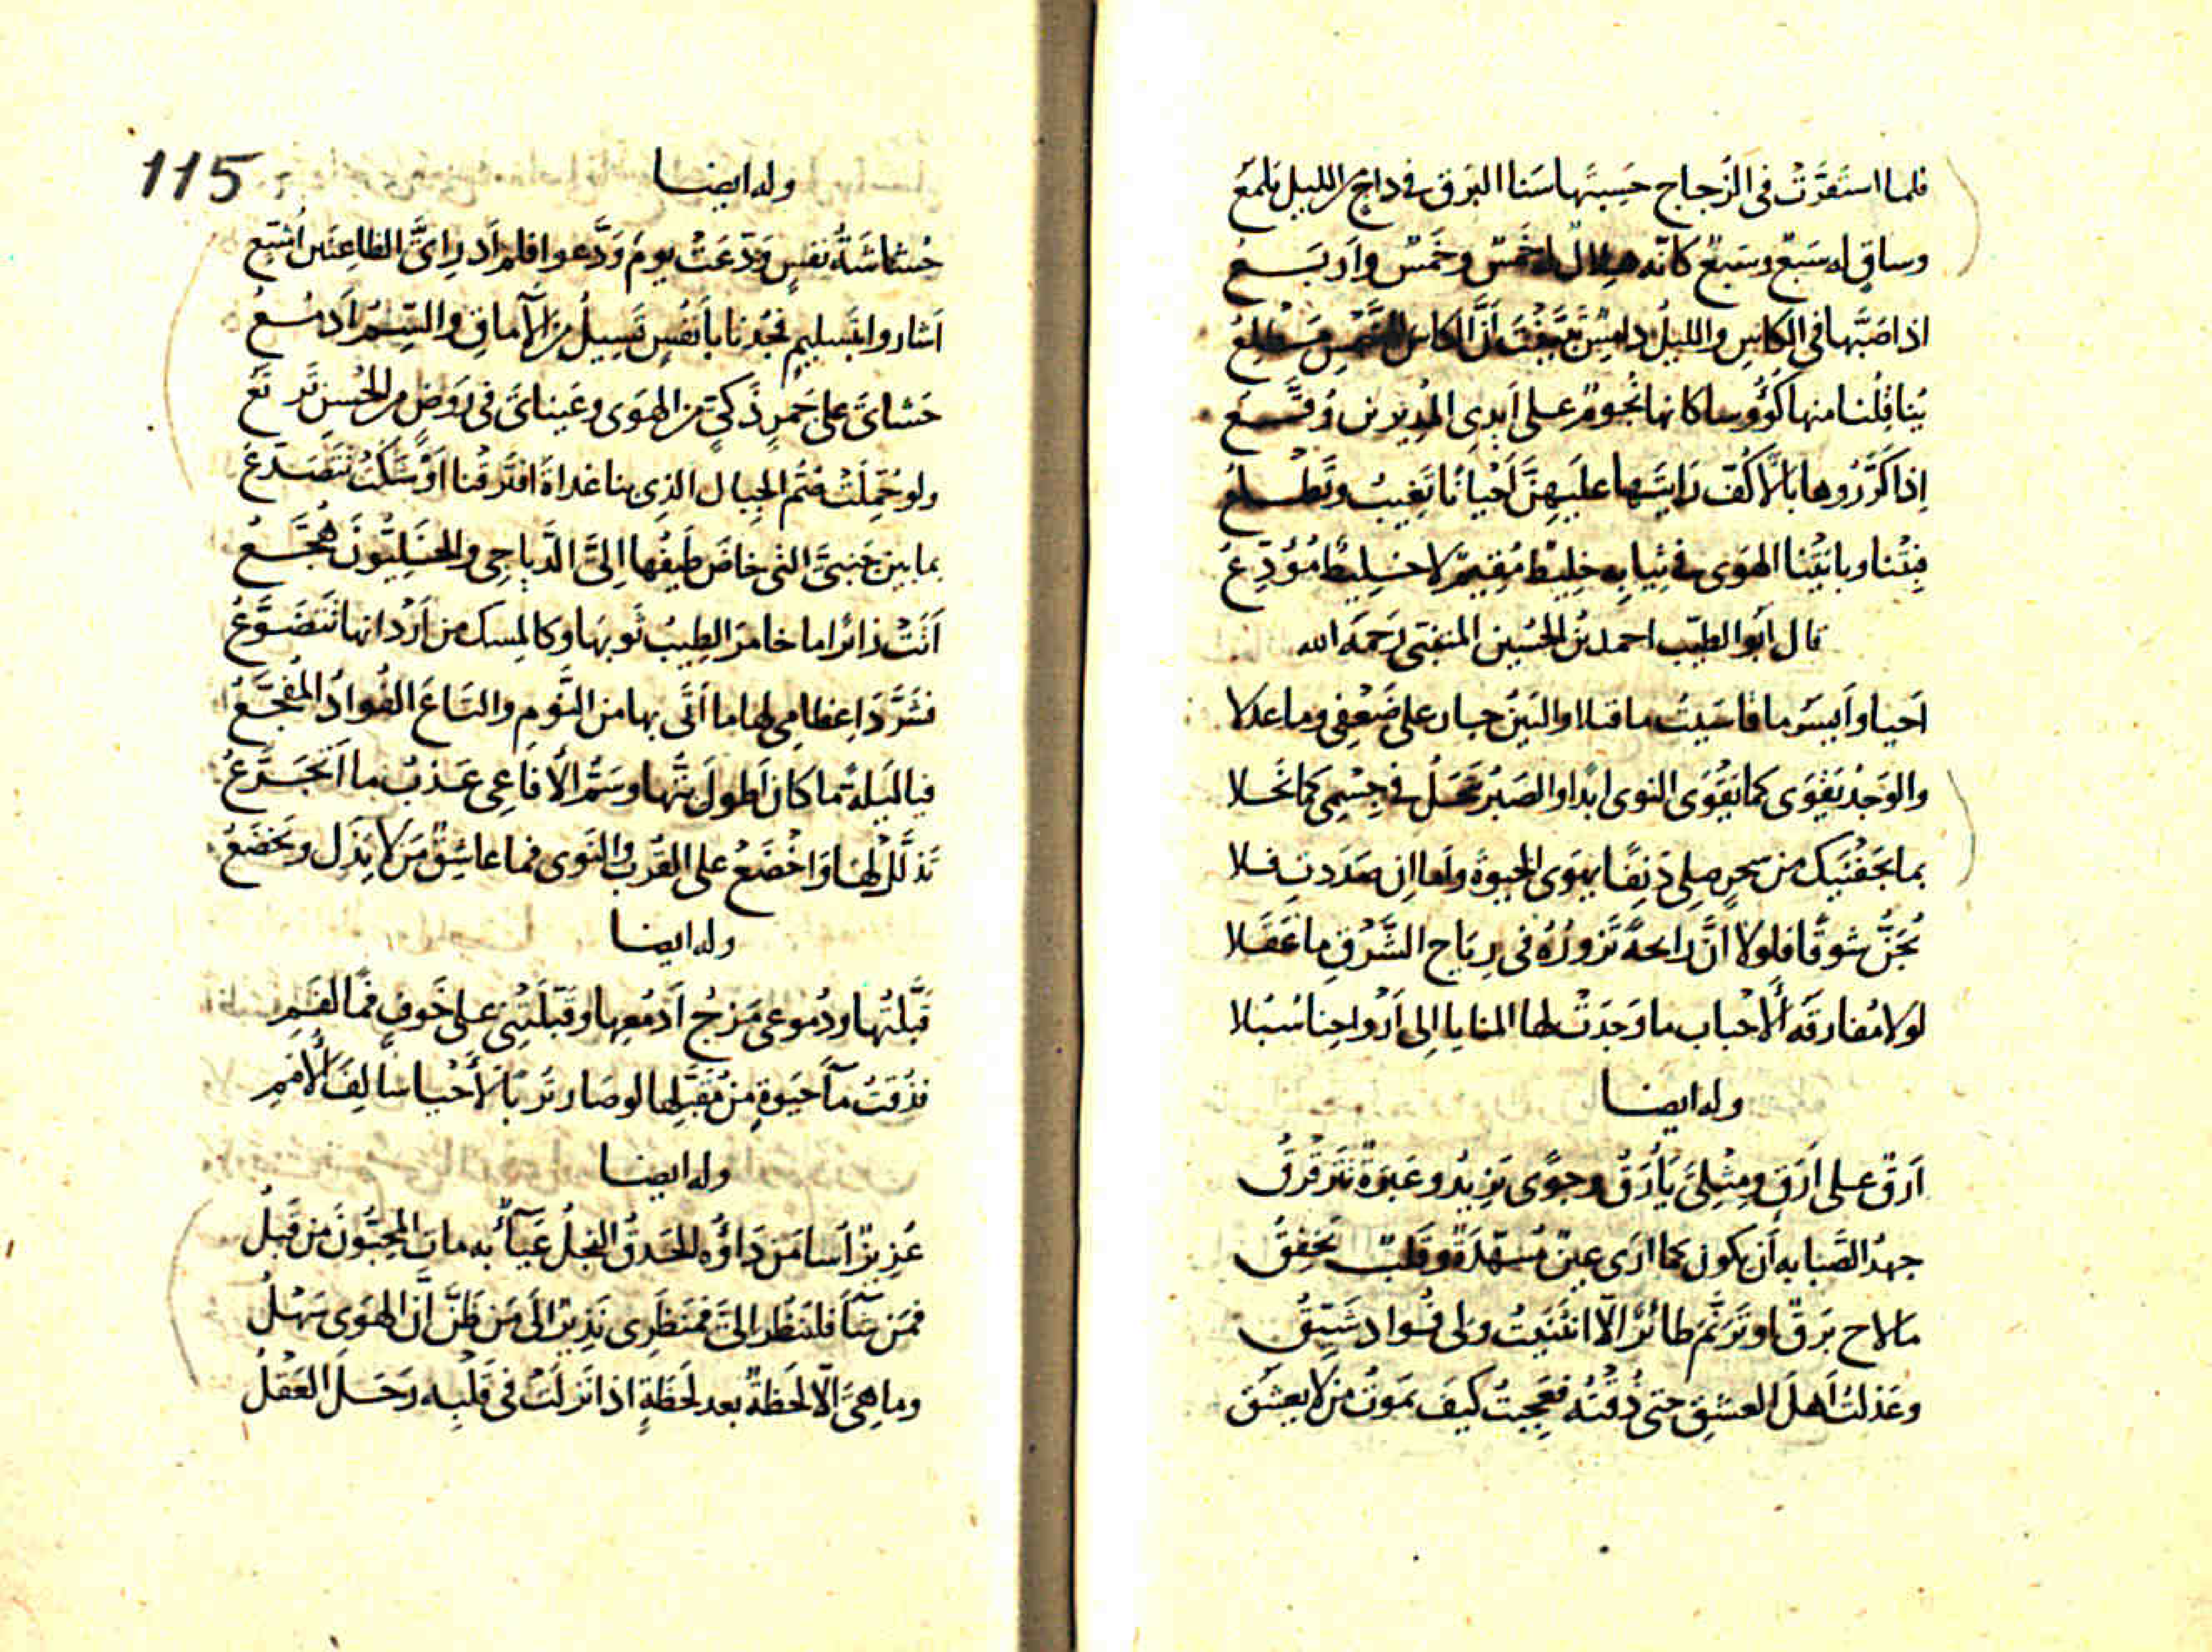 فلما استَقَرَّتْ فى الزُجاج حَسِبتَها سَنا البَرق فى داجٍ من الليل يَلمَعُ
وساقٍ له سَبعٌ وسَبعٌ كانّه هلال له خَمسٌ وخَمسٌ واَربَـــعُ
اذا صَبَّها فى الكاسِ والليلُ دامِسٌ تَيَقَّنتَ اَنَّ الكاسَ للشَّمسِ مَــطلِعُ
يُناقِلُنا منها كُؤُوسا كانها نُجُومٌ على اَيدِى المُدِيرين وُقَّـــعُ
اِذا كَرَّرُوها بالأكُفّ رَايتَـها علَيهِنَّ اَحْيانًا تَغِيبُ وتَطــلعُ
فبِتْنا وباتَيْنا الهَوى فى ثِيابِه خلِيطٌ مُقِيمٌ لا خَـلِيطٌ مُوَدِّعُ
قال ابَو الطيّب احمد بن الحُسين المتنبّى رَحمَه الله
اَحيا واَيسَرُ ما قاسَيتُ ما قتلا والبَينُ جار على ضَعْفى وما عدلا
والوَجدُ يَقوَى كما يَقْوَى النوى ابدًا والصَبرُ يَنحَلُ فى جِسْمِى كما نَحـلا
بما بجَفنَيك من سِحرٍ صِلِى دَنِفًا يهوَى الحيوةَ واَما اِن صَدَدتِ فـلا
يُجَنُّ شوقًا فلولا انَّ رائحةً تَزُورُهُ فى رِيَاح الشَّرْقِ ما عَقَلا
لولا مُفارقَه الأحْباب ما وَجَدَتْ لها المنايا اِلى اَرْواحِنا سُبُلا
وله ايضا
اَرَقٌ على اَرَقٍ ومِثْلِىَ يَأرَقُ وجَوًى يَزِيدُ وعَبرَةٌ تَتَرَقْرَقُ
جهدُ الصَّبابه أن يكون كما ارَى عينٌ مُسهَّدَةٌ وقَلبٌ يَخفِقُ
ما لاح بَرقٌ او تَرَنَّمَ طائرٌ الّا انثَنَيتُ ولى فـواد شَيّقُ
وعَذلتُ اَهلَ العشق حتى ذُقْتُه فعَجِبتُ كيفَ يَموتُ مَن لا يعشَقُ
115
وله ايضا
حُشاشَةُ نفسٍ وَدّعَتْ يومَ وَدَّعوا فلم اَدرِ اىَّ الظاعِنَين اُشَيّع
اَشاروا بتَسليمٍ فجُدنا باَنفُسٍ تَسِيلُ من الآماقِ والسِّمُ اَدمُــعُ
حَشاىَ على جَمرٍ ذَكىٍّ من الهوَى وعَيناىَ فى رَوضٍ من الحُسنِ تَرتَعُ
ولو حُمِّلَتْ صُمُّ الجِبال الذى بنا غداةَ افتَرقْنا اَوْشَكَتْ تَتَصَدّعُ
بما بين جَنبىَّ التى خاضَ طَيفُها اِلىَّ الدَّياجى والخَلِيُّونَ هُجَّـــعُ
اَتَتْ زائرا ما خامرَ الطِيبُ ثَوبَها وكالمِسك من اَرْدانها تَتَضَـوَّعُ
فشَرَّدَ اِعظامى لها ما اَتَى بها من النَّوم والتاعَ الفُوادُ المُفَجَّعُ
فيا لَيلةً ما كان اَطولَ بِتُّها وسَمُّ الأفاعِى عَـذبُ ما اَتَجَـرَّعُ
تَذلَّل لها وَاخْضَعْ على القُربِ والنَّوى فما عاشِقٌ مَن لا يَذِل ويَخضَعُ
وله ايضا
قَبَّلتُها ودُموعى مَزجُ اَدمُعِها وقَبّلَتْنِى على خَوفٍ فمًا لفَـمِ
فذُقتُ مآءَ حَيوةٍ مِنْ مُقَبَّلِها لو صَاب تُربًا لأَحْيا سالِفَ الأُمَمِ
وله ايضا
عَزِيزٌ اَسا مَن دَاوُه الحَدقُ النُجلُ عَيآءٌ به مات المُحِبّونَ من قَبلُ
فمَن شآءَ فليَنظُر اِلىَّ فمَنظَرِى نَذِيرٌ الى مَن ظَنَّ اَنَّ الهَوى سَهْلُ
وما هِىَ الّا لَحظةٌ بعد لَحظَةٍ اذا نَزلَت فى قَلبِه رَحَــلَ العَقلُ